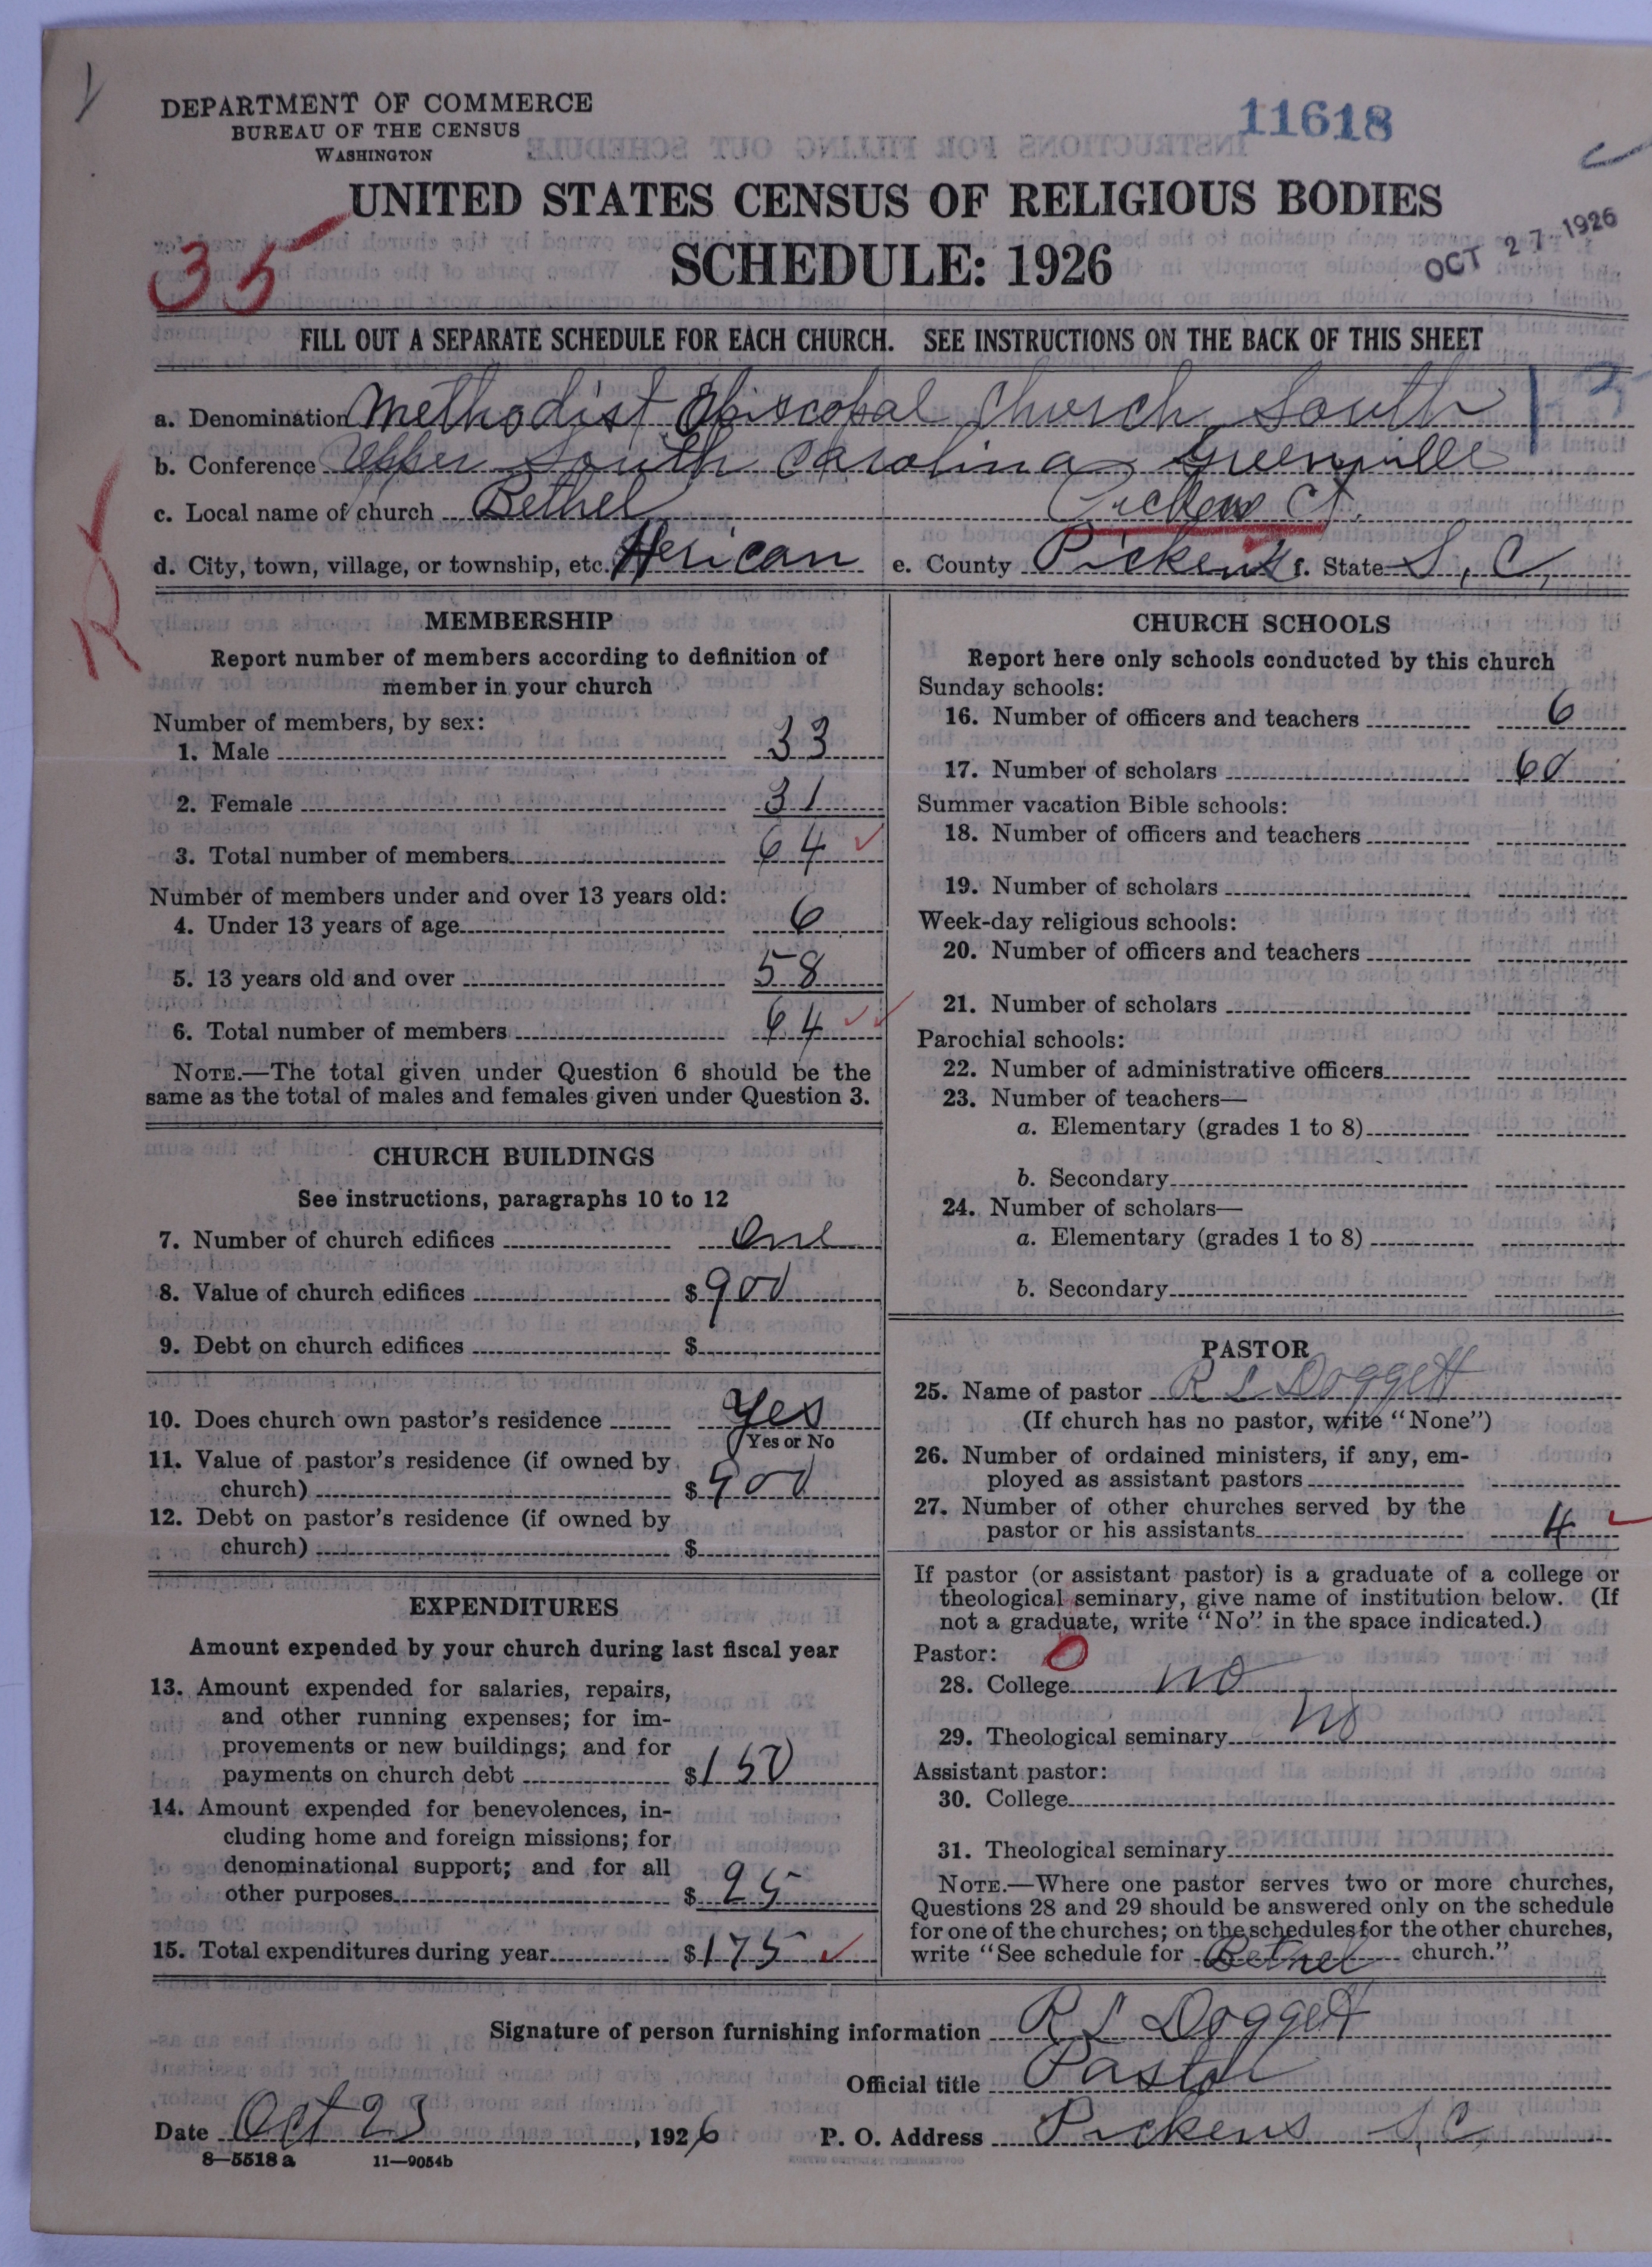 DEPARTMENT OF COMMERCE
BUREAU OF THE CENSUS
WASHINGTON
11618
UNITED STATES CENSUS OF RELIGIOUS BODIES
SCHEDULE: 1926
OCT 27 1926
35
FILL OUT A SEPARATE SCHEDULE FOR EACH CHURCH. SEE INSTRUCTIONS ON THE BACK OF THIS SHEET
a. Denomination Methodist Episcopal Church South
b. Conference Upper South Carolina Greenville
c. Local name of church Bethel Pickens Ct.
d. City, town, village, or township, etc. e. County Pickens f. State S, C,
MEMBERSHIP
Report number of members according to definition of
member in your church
Number of members, by sex:
1. Male 33
2. Female 31
3. Total number of members 64
Number of members under and over 13 years old:
4. Under 13 years of age 6
5. 13 years old and over 58
6. Total number of members 64
NOTE.—The total given under Question 6 should be the
same as the total of males and females given under Question 3.
CHURCH BUILDINGS
See instructions, paragraphs 10 to 12
7. Number of church edifices one
8. Value of church edifices $900
9. Debt on church edifices $
10. Does church own pastor's residence Yes
Yes or No
11. Value of pastor's residence (if owned by
church) $900
12. Debt on pastor's residence (if owned by
church) $
EXPENDITURES
Amount expended by your church during last fiscal year
13. Amount expended for salaries, repairs,
and other running expenses; for im-
provements or new buildings; and for
payments on church debt $150
14. Amount expended for benevolences, in-
cluding home and foreign missions; for
denominational support; and for all
other purposes $25
15. Total expenditures during year $175
CHURCH SCHOOLS
Report here only schools conducted by this church
Sunday schools:
16. Number of officers and teachers 6
17. Number of scholars 60
Summer vacation Bible schools:
18. Number of officers and teachers
19. Number of scholars
Week-day religious schools:
20. Number of officers and teachers
21. Number of scholars
Parochial schools:
22. Number of administrative officers
23. Number of teachers—
a. Elementary (grades 1 to 8)
b. Secondary
24. Number of scholars—
a. Elementary (grades 1 to 8)
b. Secondary
PASTOR
25. Name of pastor R L Doggett
(If church has no pastor, write "None")
26. Number of ordained ministers, if any, em-
ployed as assistant pastors
27. Number of other churches served by the
pastor or his assistants 4
If pastor (or assistant pastor) is a graduate of a college or
theological seminary, give name of institution below. (If
not a graduate, write "No" in the space indicated.)
Pastor: 0
28. College no
29. Theological seminary no
Assistant pastor:
30. College
31. Theological seminary
NOTE.—Where one pastor serves two or more churches,
Questions 28 and 29 should be answered only on the schedule
for one of the churches; on the schedules for the other churches,
write "See schedule for Bethel church."
Signature of person furnishing information R L Doggett
Official title Pastor
Date Oct 23, 1926 P. O. Address Pickens S, C,
8—5518 a 11—9054b